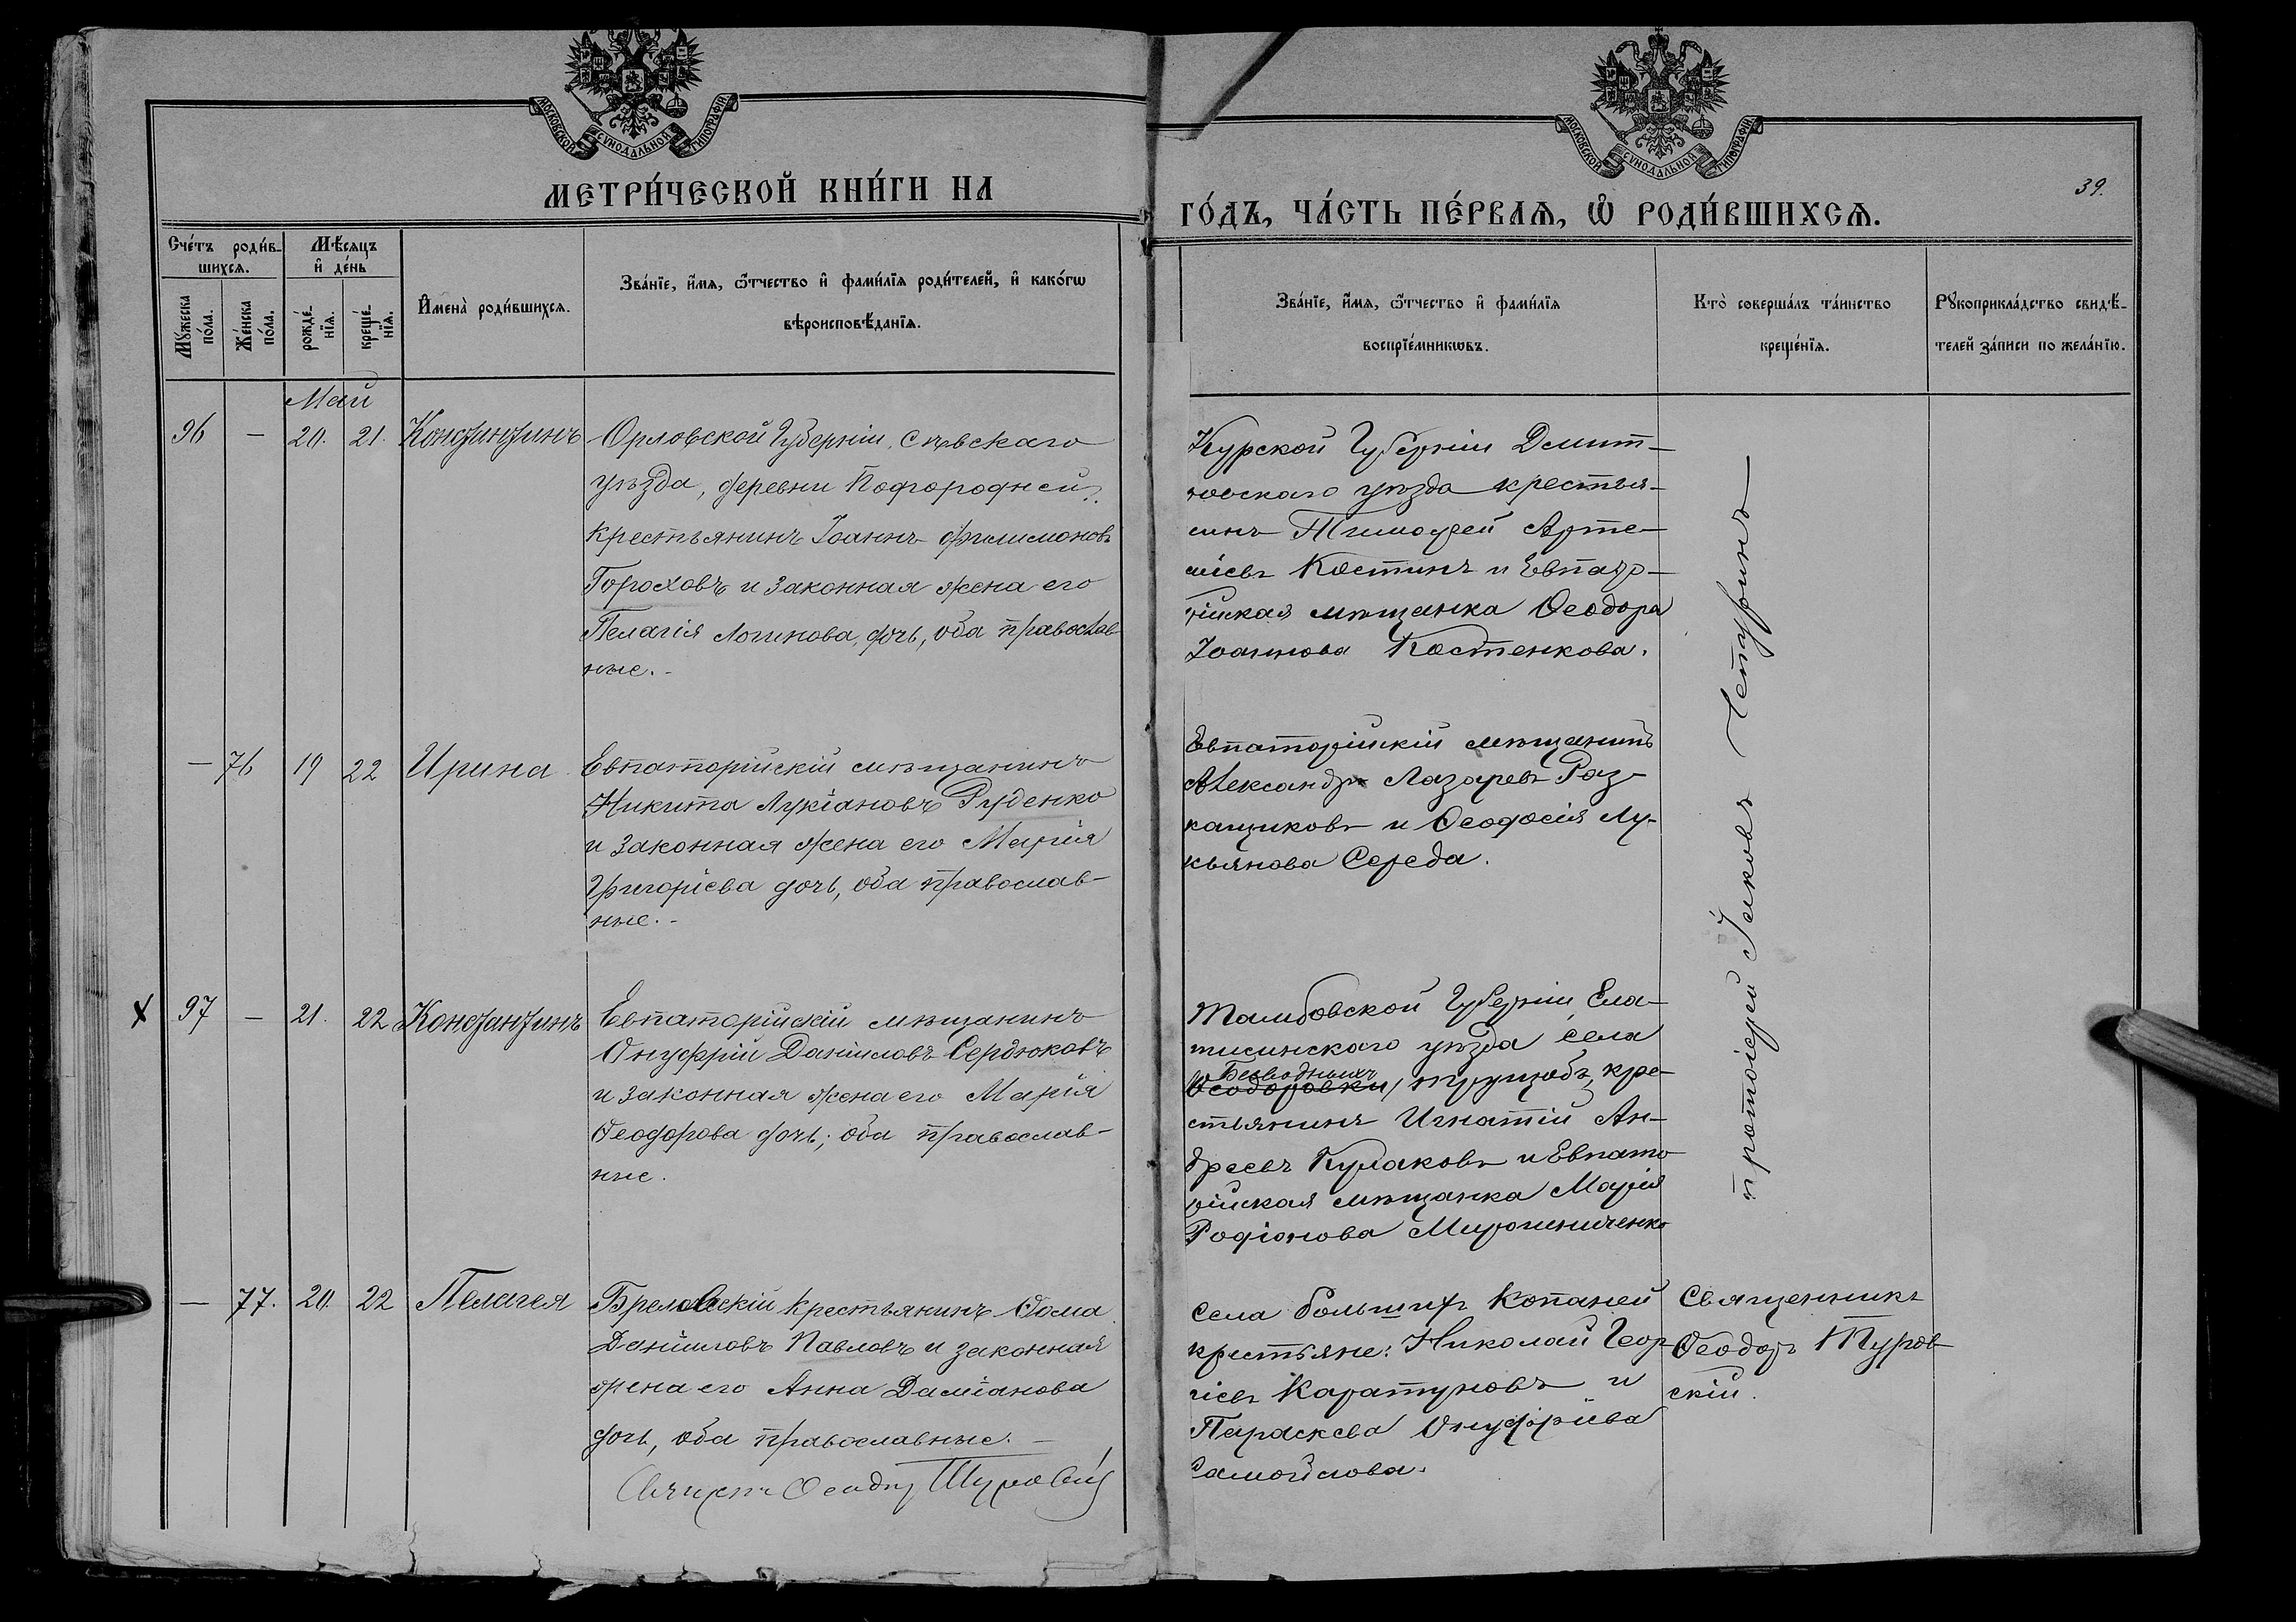 МОСКОВСКОЙ СѴНОДАЛЬНОЙ ТИПОГРАФІИ
МОСКОВСКОЙ СѴНОДАЛЬНОЙ ТИПОГРАФІИ
МЕТРИ́ЧЕСКОЙ КНИ́ГИ НА
ГО́ДЪ, ЧА́СТЬ ПЕ́РВАѦ, Ѡ҆ РОДИ́ВШИХСѦ.
39.
Сче́тъ роди́в-
шихсѧ.
Мѣ́сѧцъ
и҆ де́нь
Мꙋ́жеска
по́ла.
Же́нска
по́ла.
рожде́-
нїѧ.
креще́-
нїѧ.
И҆мена̀ роди́вшихсѧ.
Зва́нїе, и҆́мѧ, ѻ҆́тчество и҆ фами́лїѧ роди́телей, и҆ како́гѡ
вѣроисповѣ́данїѧ.
Зва́нїе, и҆́мѧ, ѻ҆́тчество и҆ фами́лїѧ
воспрїе́мникѡвъ.
Кто̀ соверша́лъ та́инство
креще́нїѧ.
Рꙋкоприкла́дство свидѣ́-
телей за́писи по жела́нїю.
Май
96 — 20. 21. Константинъ
Орловской Губерніи, Сѣвскаго
уѣзда, деревни Подгородней
крестьянинъ Іоаннъ Филимоновъ
Гороховъ и законная жена его
Пелагія Логинова дочь, оба православ-
ные.-
Курской Губерніи Дмит-
ровскаго уѣзда крестья-
нинъ Тимофей Арте-
міевъ Костинъ и Евпато-
рійская мѣщанка Ѳеодора
Іоаннова Костенкова.
— 76 19 22 Ирина
Евпаторійскій мѣщанинъ
Никита Лукіановъ Руденко
и законная жена его Марія
Григоріева дочь, оба православ-
ные.-
Евпаторійскій мѣщанинъ
Александръ Лазаревъ Раз-
кащиковъ и Ѳеодосія Лу-
кьянова Середа.
97 — 21. 22 Константинъ
Евпаторійскій мѣщанинъ
Онуфрій Даніиловъ Сердюковъ
и законная жена его Марія
Ѳеодорова дочь; оба православ-
ные.
Тамбовской Губерніи, Ела-
тисинскаго уѣзда села
Безводныхъ
Ѳеодоровки, прудцовъ, кре-
стьянинъ Игнатій Ан-
дреевъ Кулаковъ и Евпато
рійская мѣщанка Марія
Родіонова Мирошниченко
протоіерей Іаковъ Чепуринъ
— 77. 20. 22 Пелагея
крестьянинъ Ѳома
Даніиловъ Павловъ и законная
жена его Анна Даміанова
дочь, оба православные.—
Священ. Ѳеодоръ Туровскій
Села большихъ Копаней
крестьяне: Николай Геор
гіевъ Каратуновъ и
Параскева Онуфріева
Самойлова.
Священникъ
Ѳеодоръ Туров-
скій.